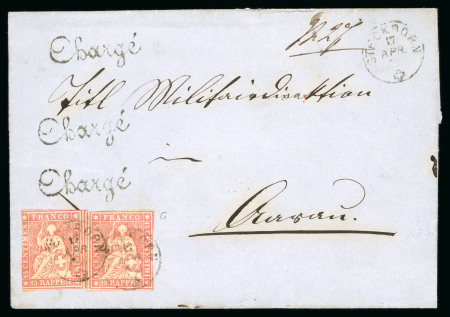 Chargé
STECKBORN
17
APR.
Titl Militairdirektion
Chargé
Chargé
Aarau.
FRANCO FRANCO
15 RAPPEN 15 RAPPEN